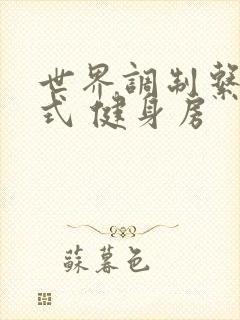 世界調制繫
式 健身房
蘇暮色